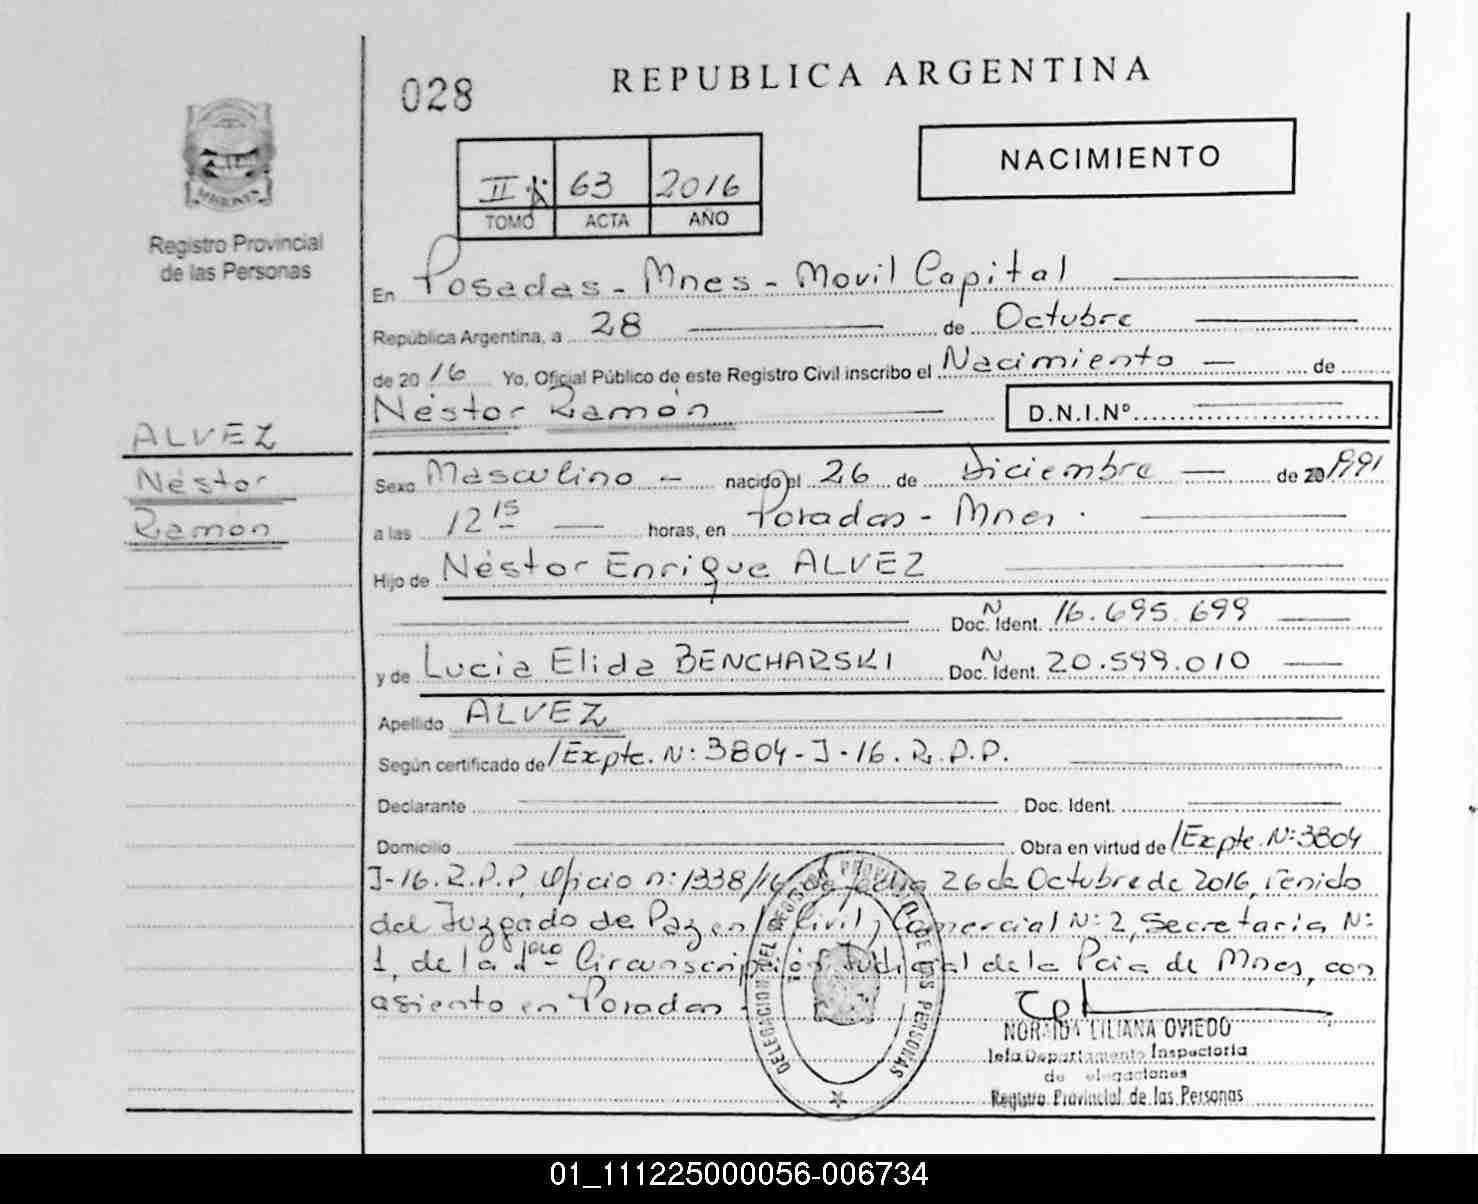 028
REPUBLICA ARGENTINA
NACIMIENTO
II 63 2016
TOMO ACTA AÑO
MISIONES
Registro Provincial
de las Personas
En Posadas - Mnes - Movil Capital
República Argentina, a 28 de Octubre
de 2016 Yo, Oficial Público de este Registro Civil inscribo el Nacimiento — de
Néstor Ramón D.N.I.Nº
ALVEZ
Néstor
Ramón
Sexo Masculino — nacido el 26 de Diciembre — de 1991
a las 12 15 — horas, en Posadas - Mnes.
Hijo de Néstor Enrique ALVEZ
Doc. Ident. N 16.695.699
y de Lucia Elida BENCHARSKI Doc. Ident. N 20.599.010
Apellido ALVEZ
Según certificado de /Expte. N: 3804-J-16. R.P.P.
Declarante Doc. Ident.
Domicilio Obra en virtud de /Expte. N: 3804
J-16. R.P.P, Oficio n: 1338/16, de fecha 26 de Octubre de 2016, venido
del Juzgado de Paz en lo Civil y Comercial N: 2, Secretaría N:
1, de la 1era Circunscripción Judicial de la Pcia de Mnes, con
asiento en Posadas -
DELEGACION DEL REGISTRO PROVINCIAL DE LAS PERSONAS
NORAIDA LILIANA OVIEDO
Jefa Departamento Inspectoria
de Delegaciones
Registro Provincial de las Personas
01_111225000056-006734